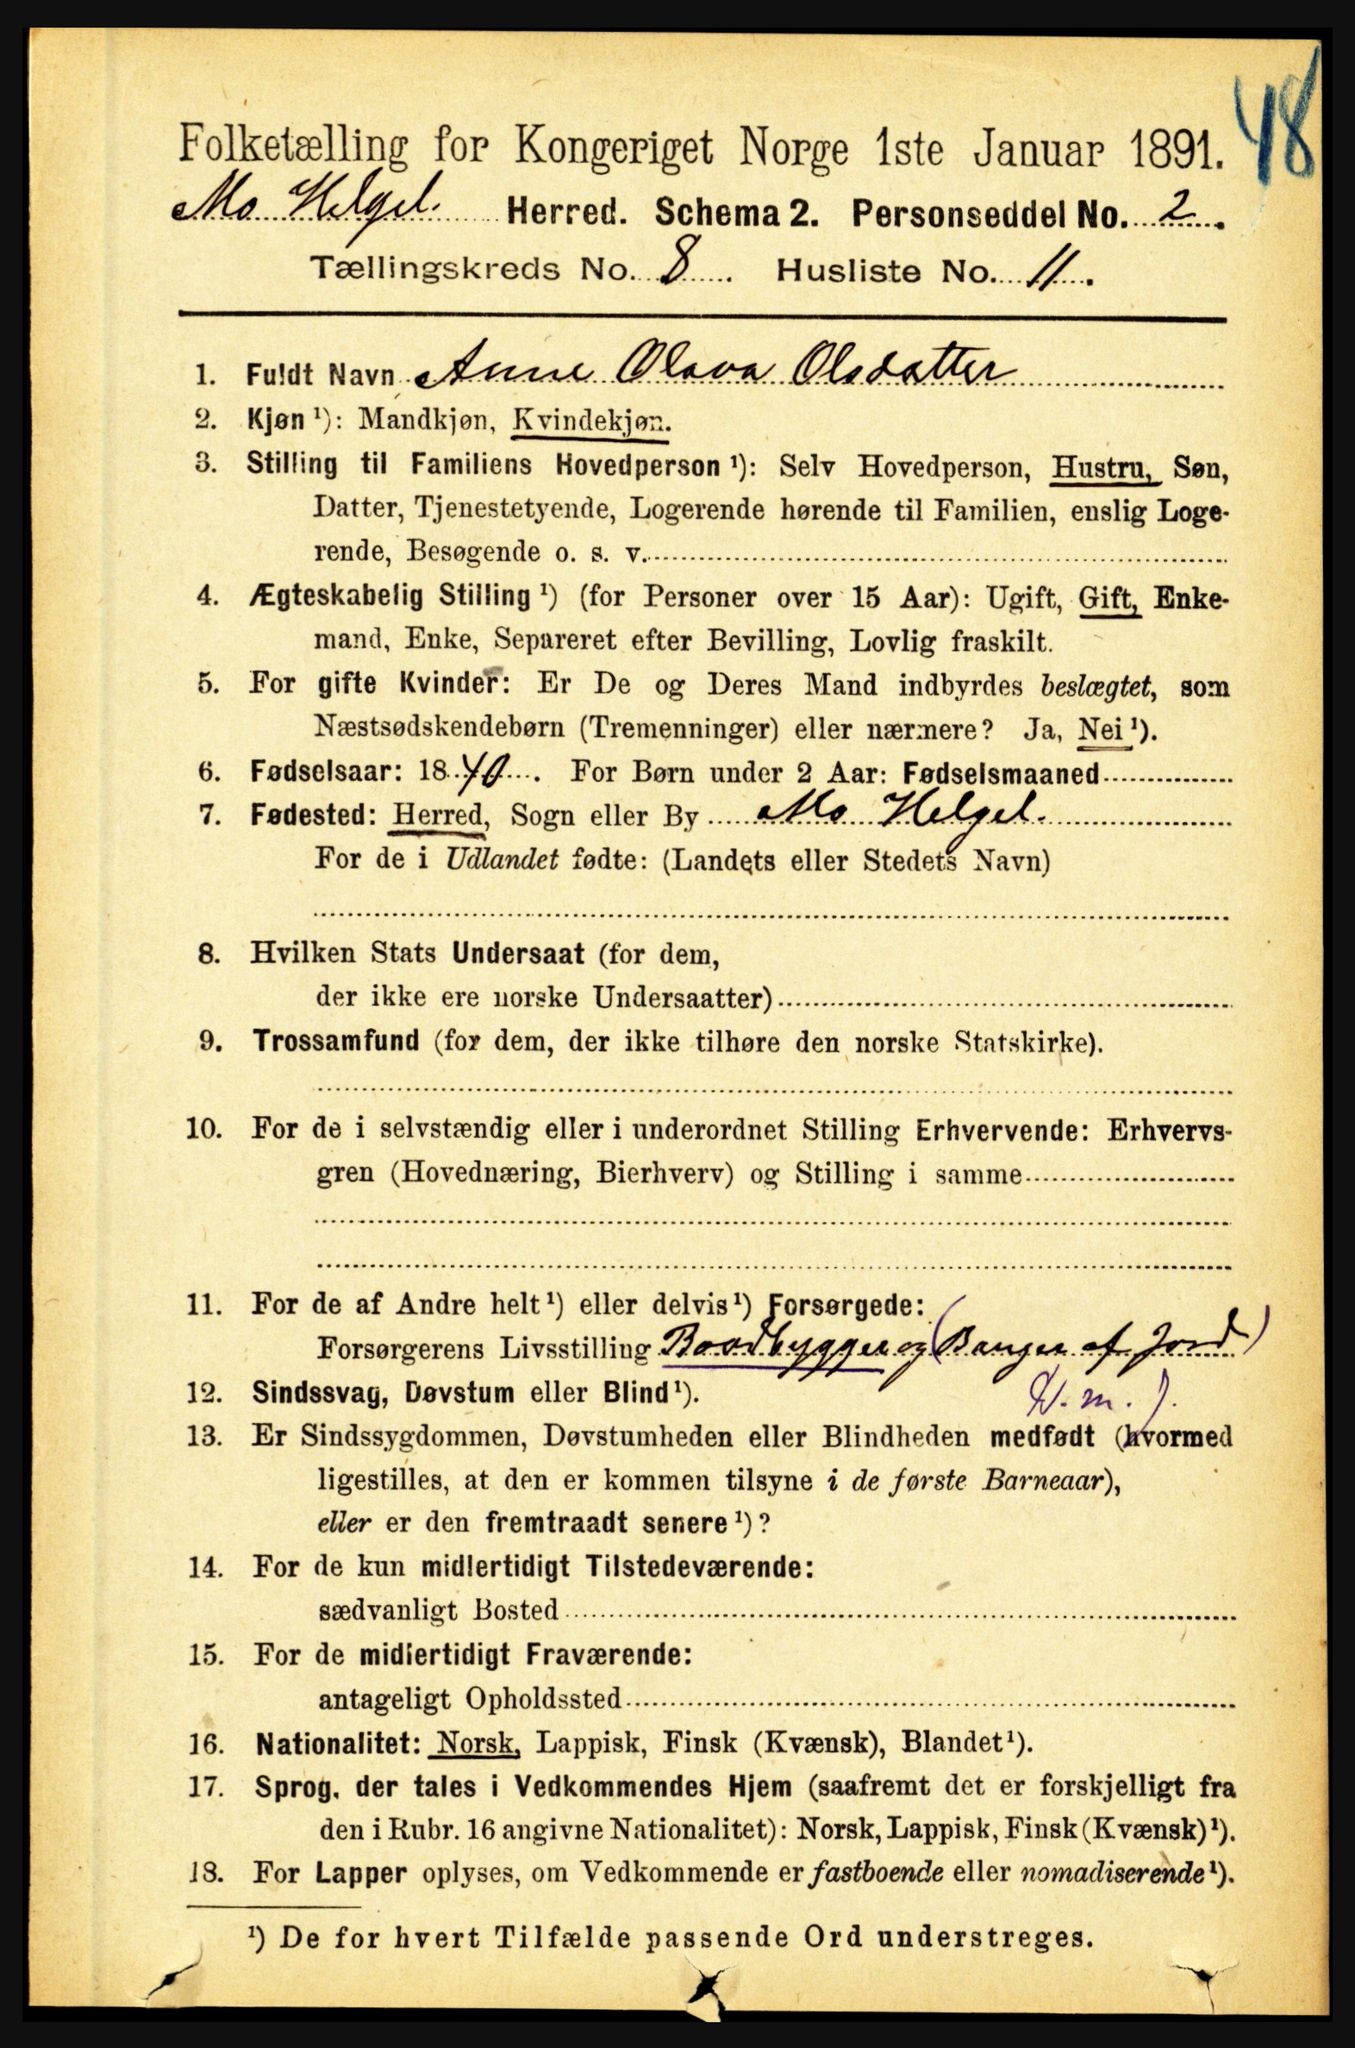 48
Folketælling for Kongeriget Norge 1ste Januar 1891.
Mo Helgel. Herred. Schema 2. Personseddel No. 2.
Tællingskreds No. 8. Husliste No. 11.
1. Fuldt Navn Anne Olava Olsdatter
2. Kjøn ¹): Mandkjøn, Kvindekjøn.
3. Stilling til Familiens Hovedperson ¹): Selv Hovedperson, Hustru, Søn,
Datter, Tjenestetyende, Logerende hørende til Familien, enslig Loge-
rende, Besøgende o. s. v.
4. Ægteskabelig Stilling ¹) (for Personer over 15 Aar): Ugift, Gift, Enke-
mand, Enke, Separeret efter Bevilling, Lovlig fraskilt.
5. For gifte Kvinder: Er De og Deres Mand indbyrdes beslægtet, som
Næstsødskendebørn (Tremenninger) eller nærmere? Ja, Nei ¹).
6. Fødselsaar: 1840. For Børn under 2 Aar: Fødselsmaaned
7. Fødested: Herred, Sogn eller By Mo Helgel.
For de i Udlandet fødte: (Landets eller Stedets Navn)
8. Hvilken Stats Undersaat (for dem,
der ikke ere norske Undersaatter)
9. Trossamfund (for dem, der ikke tilhøre den norske Statskirke).
10. For de i selvstændig eller i underordnet Stilling Erhvervende: Erhvervs-
gren (Hovednæring, Bierhverv) og Stilling i samme
11. For de af Andre helt ¹) eller delvis ¹) Forsørgede:
Forsørgerens Livsstilling Baadbygger og (Bruger af Jord)
12. Sindssvag, Døvstum eller Blind ¹).
13. Er Sindssygdommen, Døvstumheden eller Blindheden medfødt (hvormed
ligestilles, at den er kommen tilsyne i de første Barneaar),
eller er den fremtraadt senere ¹)?
14. For de kun midlertidigt Tilstedeværende:
sædvanligt Bosted
15. For de midlertidigt Fraværende:
antageligt Opholdssted
16. Nationalitet: Norsk, Lappisk, Finsk (Kvænsk), Blandet ¹).
17. Sprog, der tales i Vedkommendes Hjem (saafremt det er forskjelligt fra
den i Rubr. 16 angivne Nationalitet): Norsk, Lappisk, Finsk (Kvænsk) ¹).
18. For Lapper oplyses, om Vedkommende er fastboende eller nomadiserende ¹).
¹) De for hvert Tilfælde passende Ord understreges.